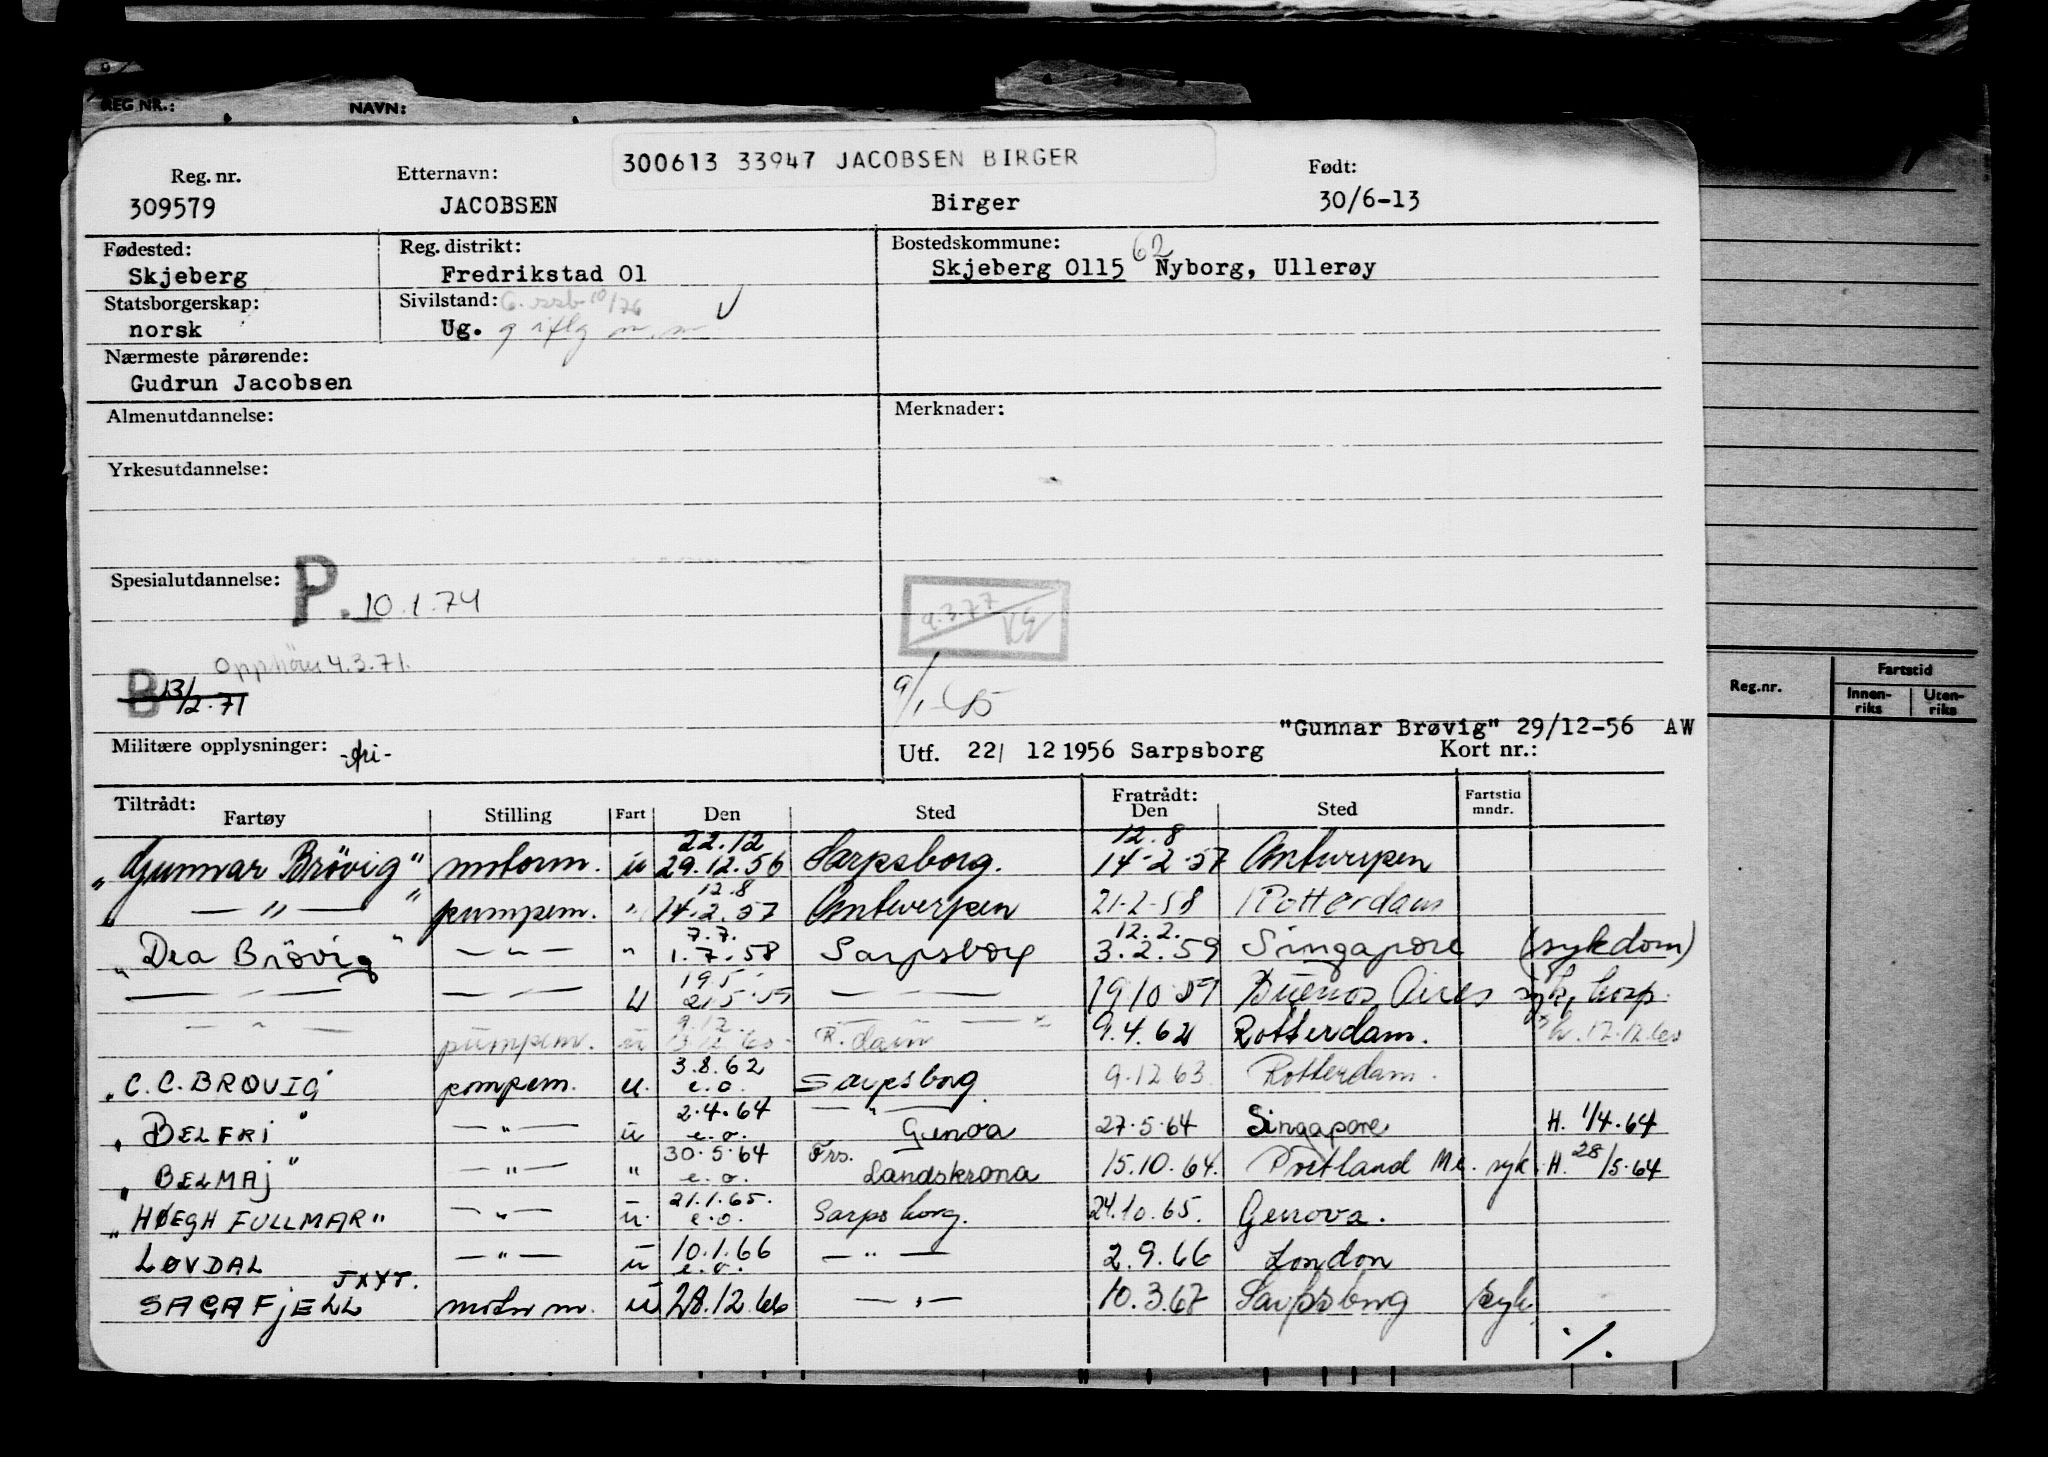 REG NR.: NAVN:
300613 33947 JACOBSEN BIRGER
Reg. nr. Etternavn: Født:
309579 JACOBSEN Birger 30/6-13
Fødested: Reg. distrikt: Bostedskommune:
Skjeberg Fredrikstad 01 Skjeberg 0115 62 Nyborg, Ullerøy
Statsborgerskap: Sivilstand:
norsk Ug. g iflg m.m
Nærmeste pårørende:
Gudrun Jacobsen
Almenutdannelse: Merknader:
Yrkesutdannelse:
Spesialutdannelse: P. 10.1.74
9.3.77
Opphöm 4.3.71.
B 13/2.71
"Gunnar Brøvig" 29/12-56 AW
Militære opplysninger: -fri- Utf. 22/ 12 1956 Sarpsborg Kort nr.:
Reg.nr. Fartstid
Innen-riks Uten-riks
Tiltrådt: Fratrådt: Fartstid
Fartøy Stilling Fart Den Sted Den Sted mndr.
22.12 12.8
"Gunnar Brövig" motorm. u 29.12.56 Sarpsborg. 14-2-57 Antwerpen
12.8
— " — pumpem. " 14.2.57 Antwerpen 21-2-58 Rotterdam
7.7. 12.2.
"Dea Brövig" — " — " 1.7.58 Sarpsborg 3.2.59 Singapore (sykdom)
19.5
— — — — u 21.5.59 — — 19.10.59 Buenos Aires syk, hosp.
9.12
— " — pumpem. u R.dam 9.4.62 Rotterdam. 12.12.60
3.8.62
"C.C. BRØVIG" pompem. u. e.o. Sarpsborg 9.12 63 Rotterdam.
2.4.64 — " —
"BELFRI" — " — u e.o. Genoa 27.5.64 Singapore H. 1/4.64
30.5.64 Frs.
"BELMAJ" — " — " e.o. Landskrona 15.10.64. Portland Me. syk. H. 28/5.64
21.1.65.
"HØEGH FULLMAR" — " — u. e.o. Sarpsborg. 24.10.65. Genova.
10.1.66
LØVDAL — " — u e.o. — " — 2.9.66 London
JXYT.
SAGAFJELL motorm. u 28.12.66 — " — 10.3.67 Sarpsborg syk
./.